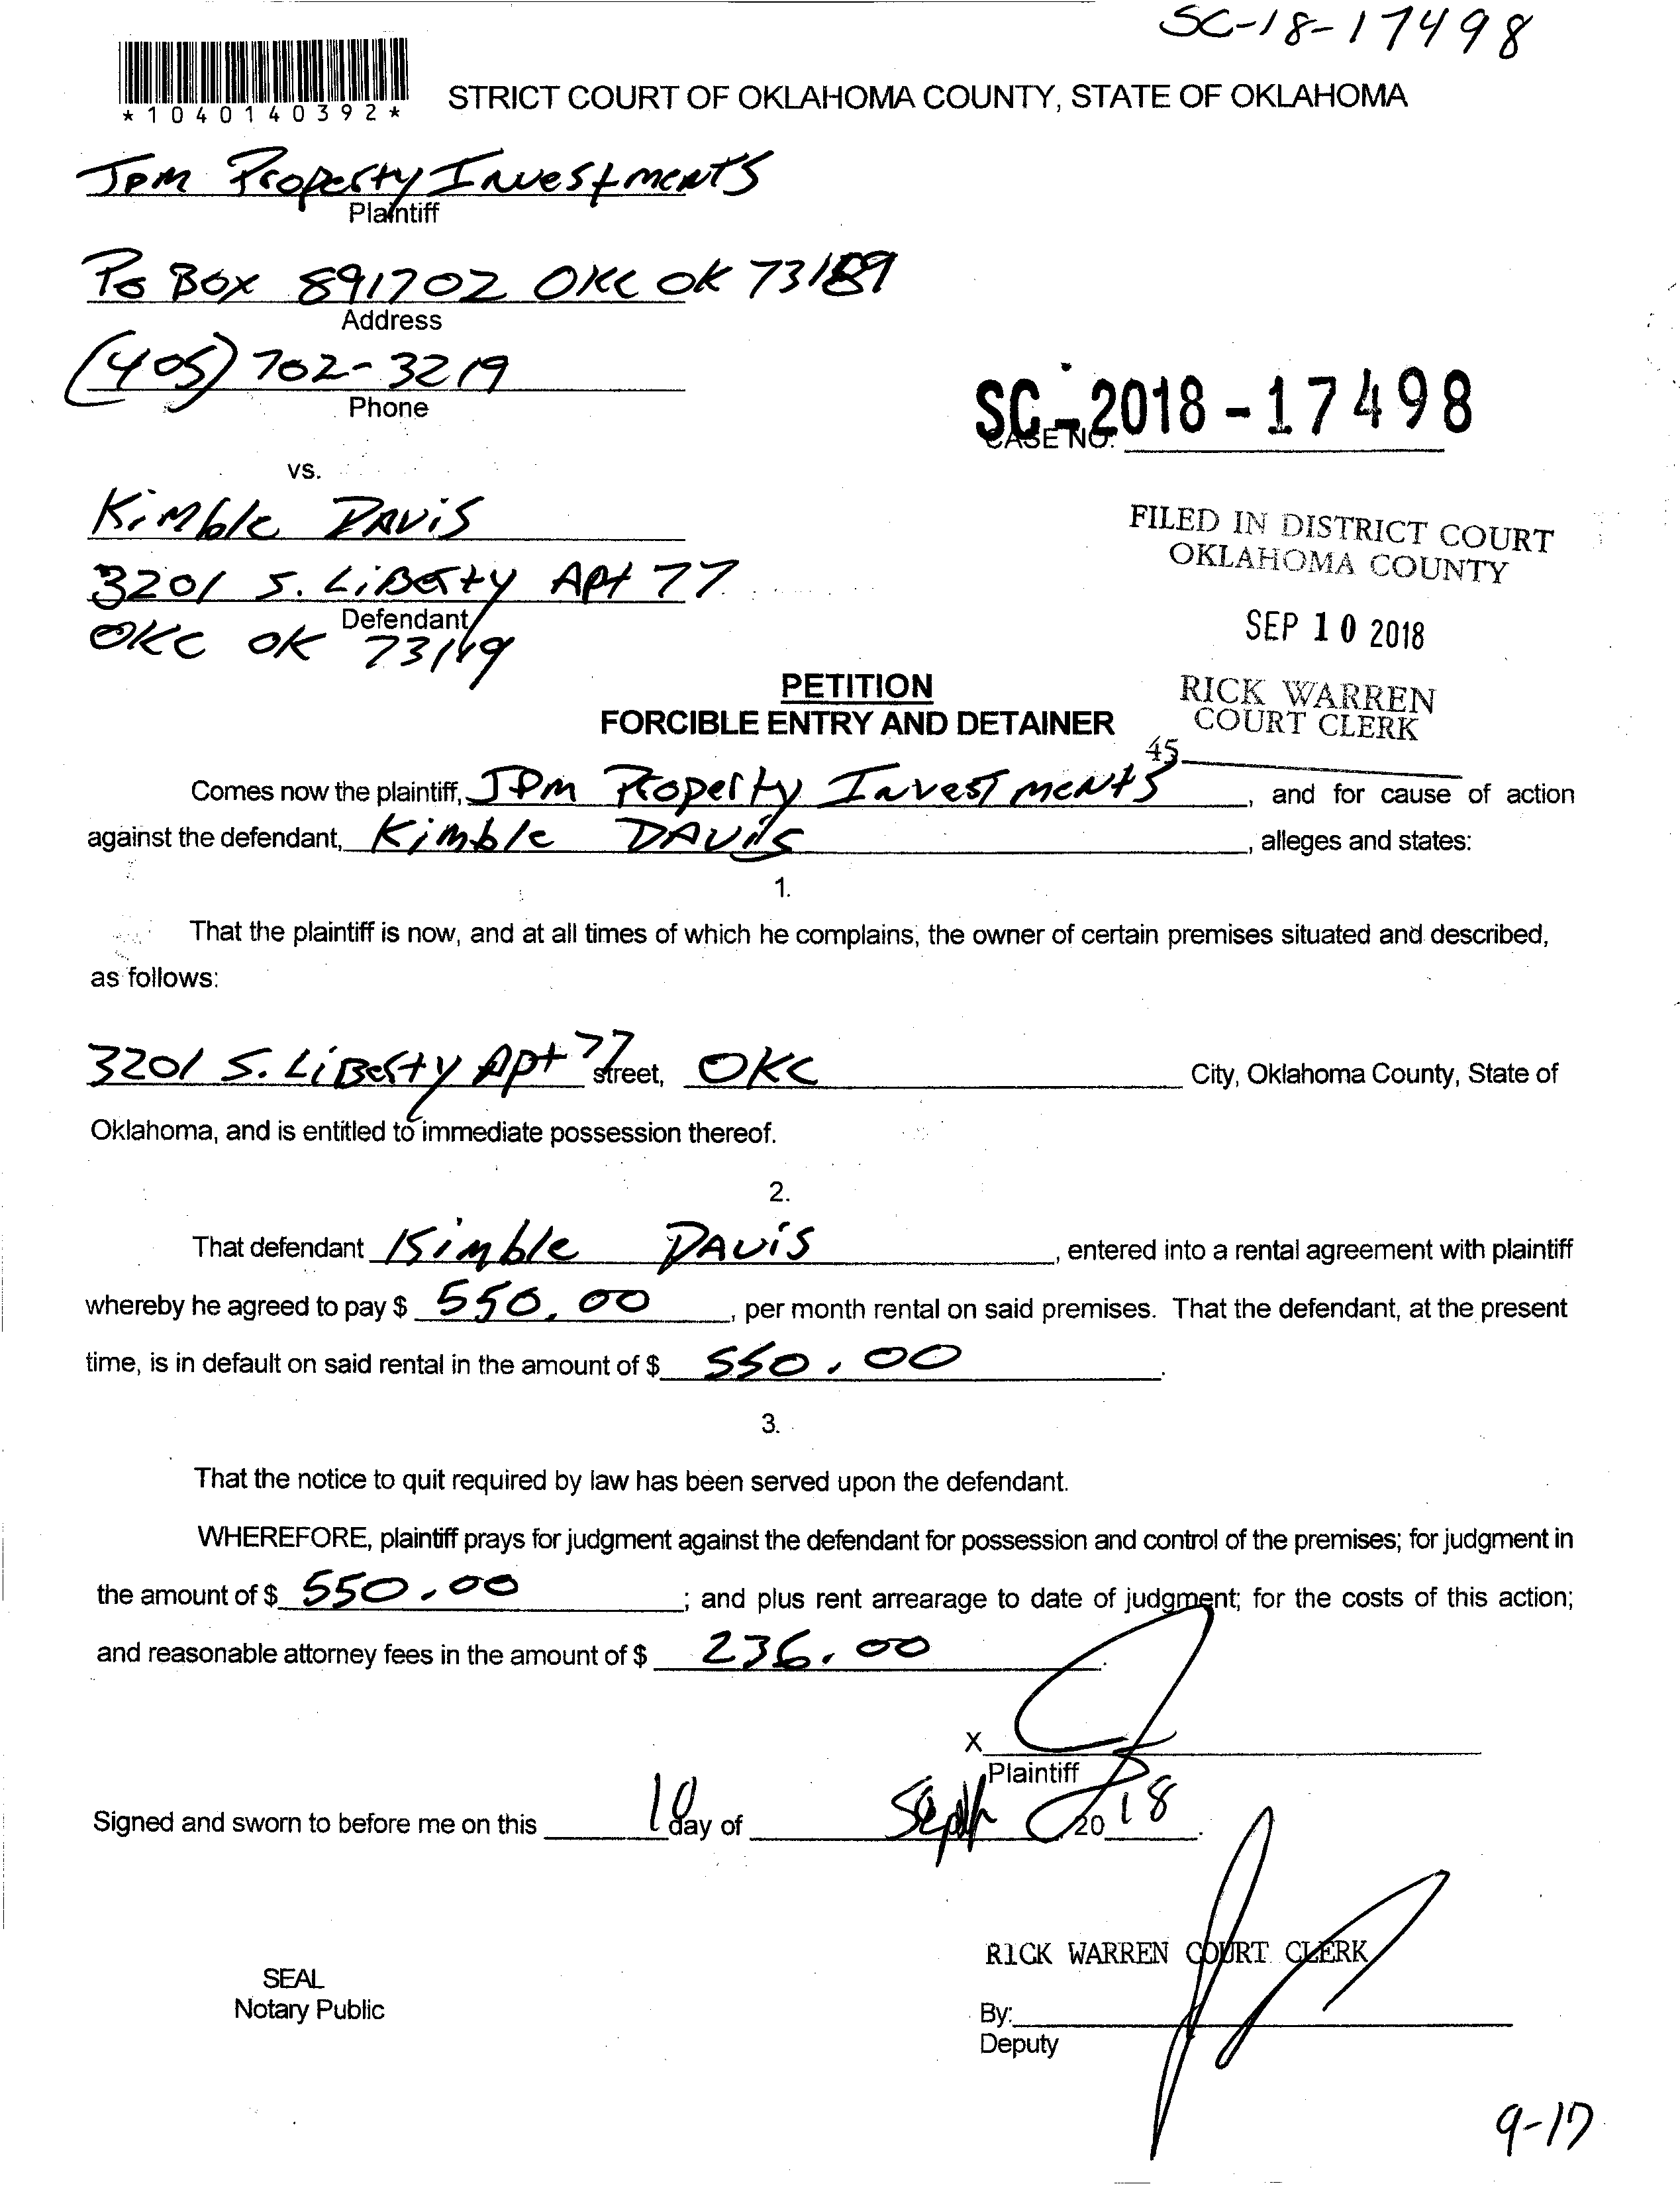 SC-18-17498
*1040140392*
STRICT COURT OF OKLAHOMA COUNTY, STATE OF OKLAHOMA
JPM Property Investments
Plaintiff
Po Box 891702 OKC OK 73189
Address
(405) 702-3219
Phone
SC-2018-17498
CASE NO.
vs.
Kimble DAViS
3201 S. LiBerty Apt 77
Defendant
OKC OK 73119
FILED IN DISTRICT COURT
OKLAHOMA COUNTY
SEP 10 2018
RICK WARREN
COURT CLERK
45
PETITION
FORCIBLE ENTRY AND DETAINER
Comes now the plaintiff, JPM Property Investments, and for cause of action
against the defendant, Kimble DAVis, alleges and states:
1.
That the plaintiff is now, and at all times of which he complains, the owner of certain premises situated and described,
as follows:
3201 S. LiBerty Apt 77 street, OKC City, Oklahoma County, State of
Oklahoma, and is entitled to immediate possession thereof.
2.
That defendant Kimble DAViS, entered into a rental agreement with plaintiff
whereby he agreed to pay $ 550.00, per month rental on said premises. That the defendant, at the present
time, is in default on said rental in the amount of $ 550.00.
3.
That the notice to quit required by law has been served upon the defendant.
WHEREFORE, plaintiff prays for judgment against the defendant for possession and control of the premises; for judgment in
the amount of $ 550.00; and plus rent arrearage to date of judgment; for the costs of this action;
and reasonable attorney fees in the amount of $ 236.00.
X
Plaintiff
Signed and sworn to before me on this 10 day of , 2018.
RICK WARREN COURT CLERK
SEAL
Notary Public
By:
Deputy
9-17